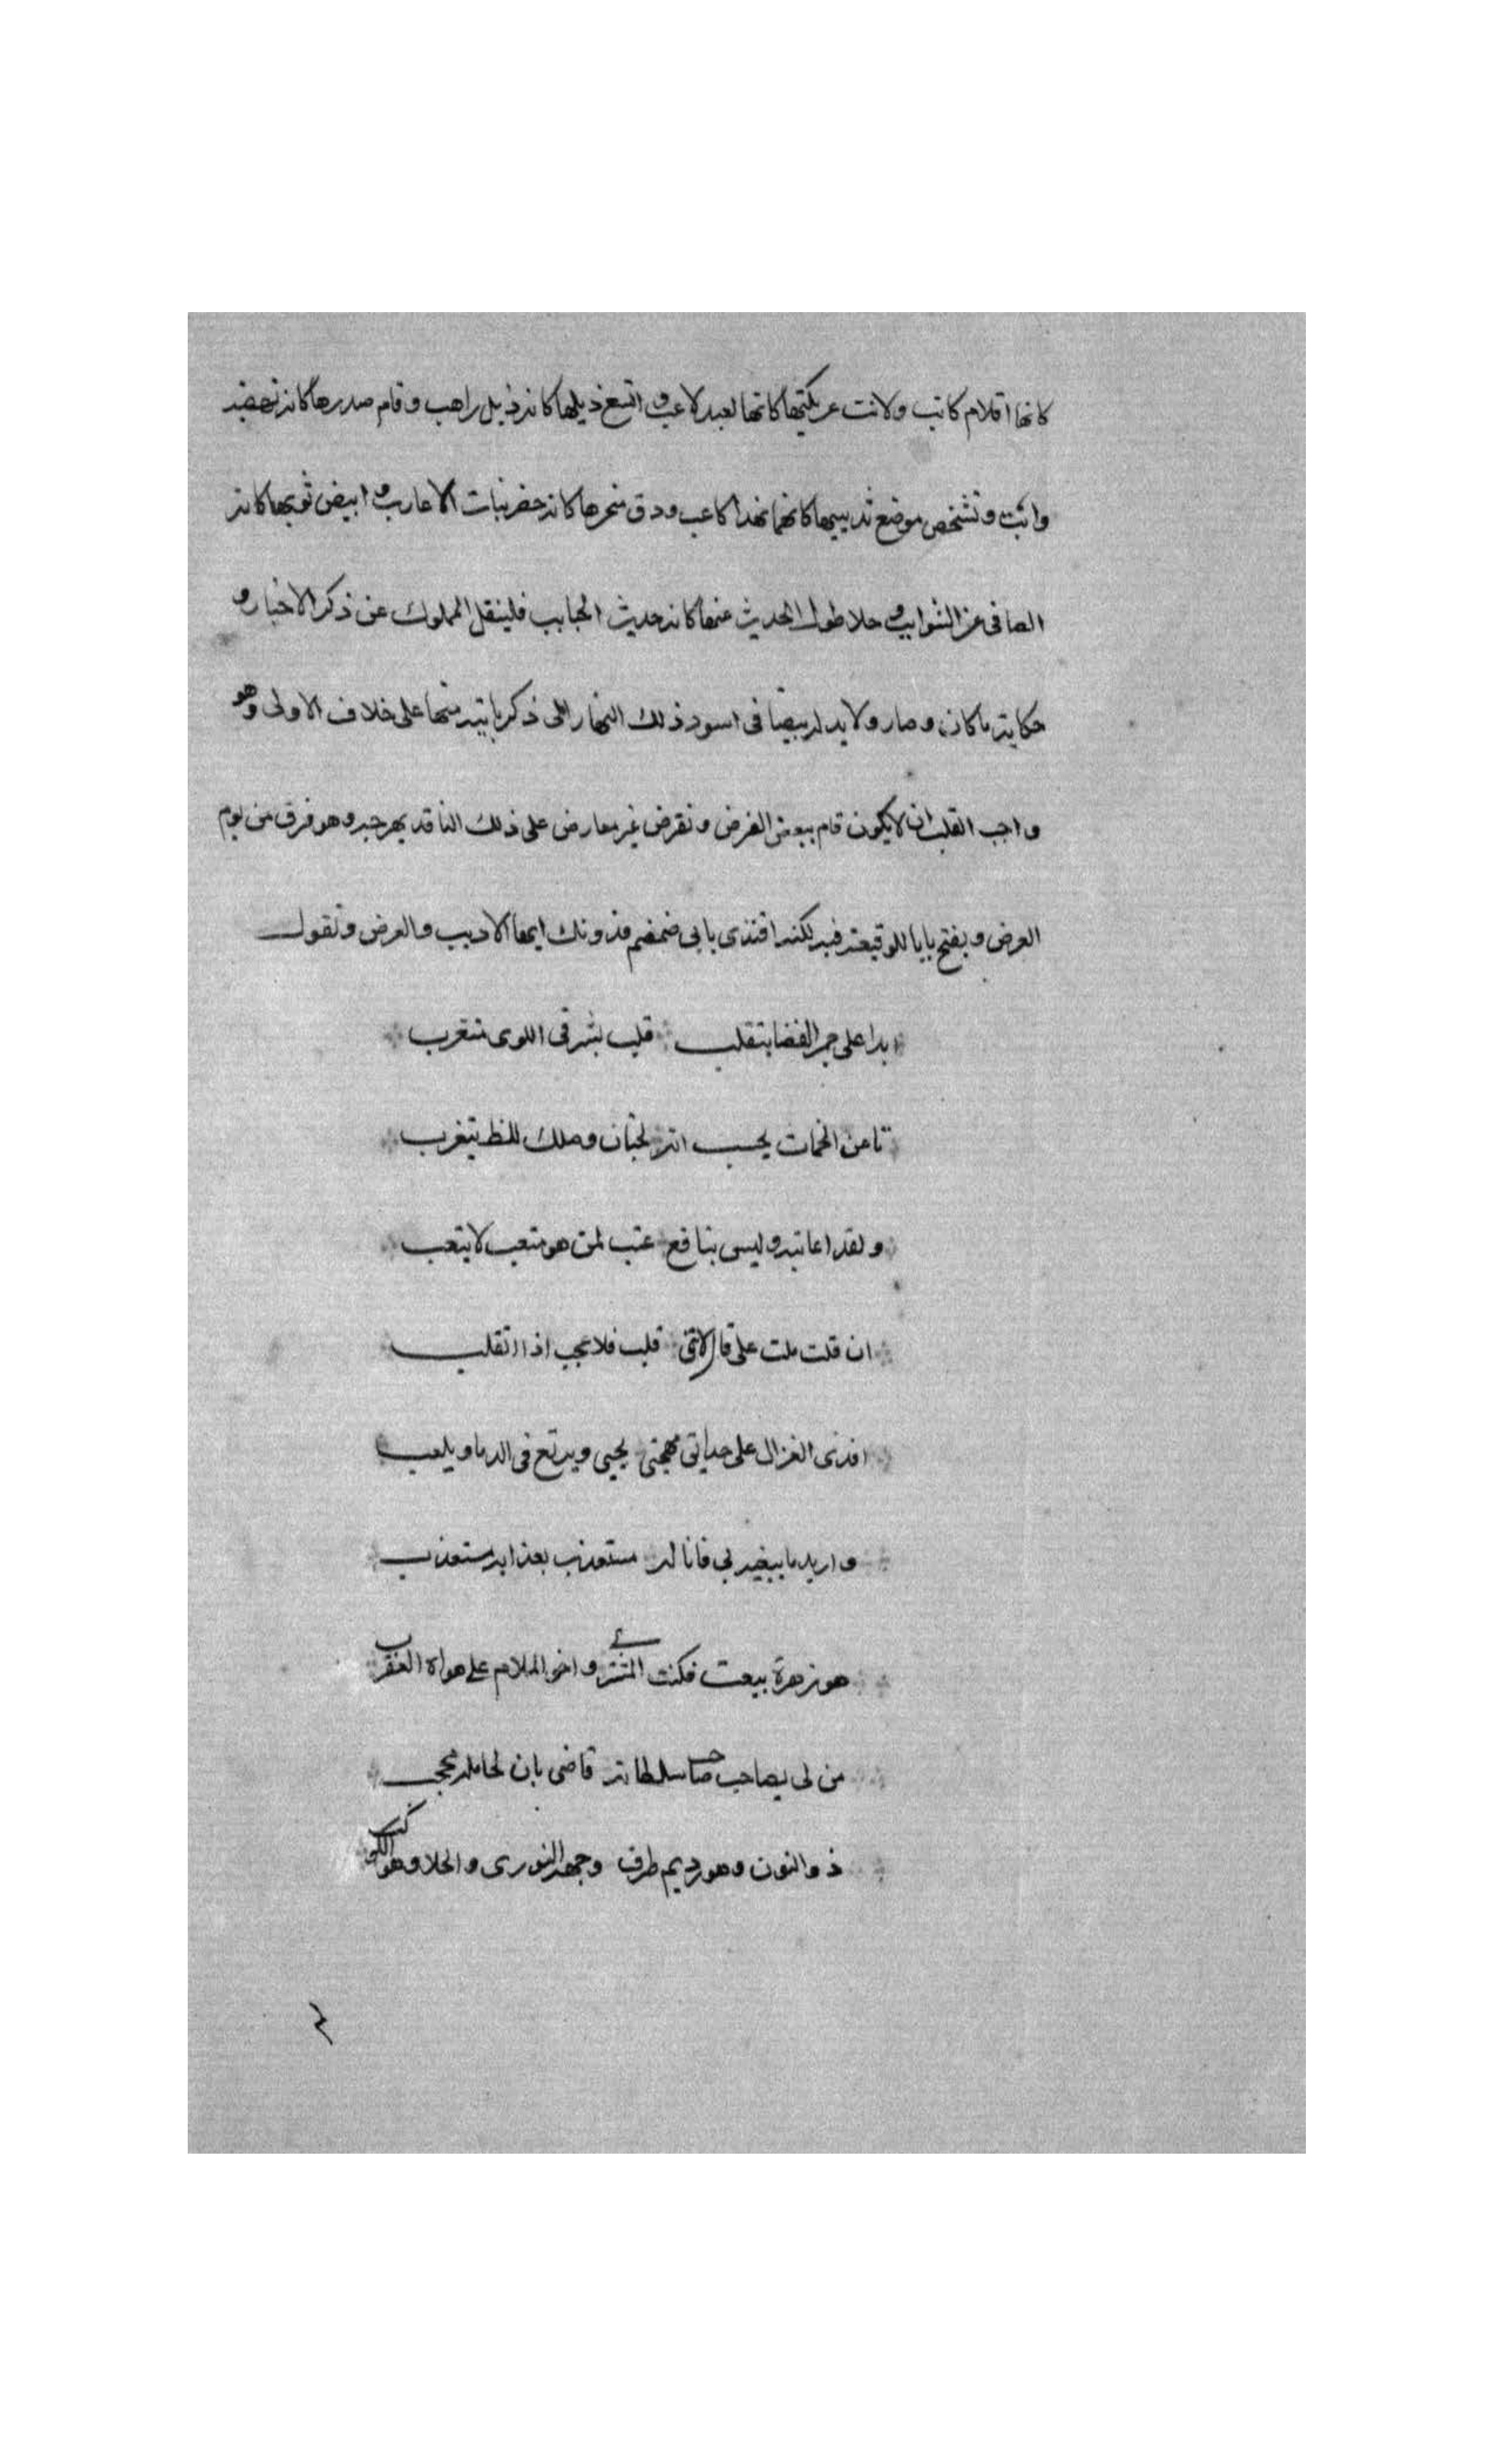 كانها اقلام كاتب ولانت عريكتها كانها لعبد لاعب و اتسع ذيلها كانه ذيل راهب وقام صدرها كانه نهضة
واثب وتشخص موضع ثدييها كانهما نهدا كاعب ودق منحرها كانه خضر بنات الاعارب و ابيض ثوبها كانه
الصافى عن الشوايب و حلا طول الحديث عنها كانه حديث الحبايب فلينقل المملوك عن ذكر الاخبار و
حكاية ما كان وصار ولا يد له بيضا فى اسود ذلك النهار الى ذكر مانيه منها على خلاف الاولى وهو
واجب القلب ان لا يكون قام ببعض الغرض ونقرض غير معارض على ذلك الناقد بهرجه وهو فرق من يوم
العرض ويفتح بابا للوقيعة فيه لكنه اقتدى بابى ضمضم فدونك ايها الاديب والعرض ونقول
ابدا على جمر الغضا يتقلب قلب بشرقى اللوى متغرب
ولقد اعاتبه وليس بنافع عتب لمن هو متعب لا يتعب
ان قلت ملت على قال لاننى قلب فلا عجب اذا اتقلب
افدى الغزال على حياتى مهجتى يحيى ويرتع فى الدما ويلعب
واريد ما يبغيه بى فانا له مستعذب بعذابه مستعذب
هو زهرة بيعت فكنت المشترى واخو الملام على هواه العقرب
من لى بصاحب سلطانه قاضى بان لحامله
ذو النون وهو رديم طرف وجهه النورى والحلا وهو الكوكب
٤